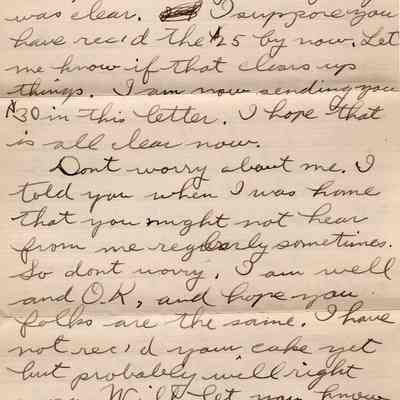 was clear. I suppose you
have rec'd the $25 by now. Let
me know if that clears up
things. I am now sending you
$30 in this letter. I hope that
is all clear now.
Dont worry about me. I
told you when I was home
that you might not hear
from me regularly sometimes.
So dont worry. I am well
and O.K, and hope you
folks are the same. I have
not rec'd your cake yet
but probably will right
away. Will let you know